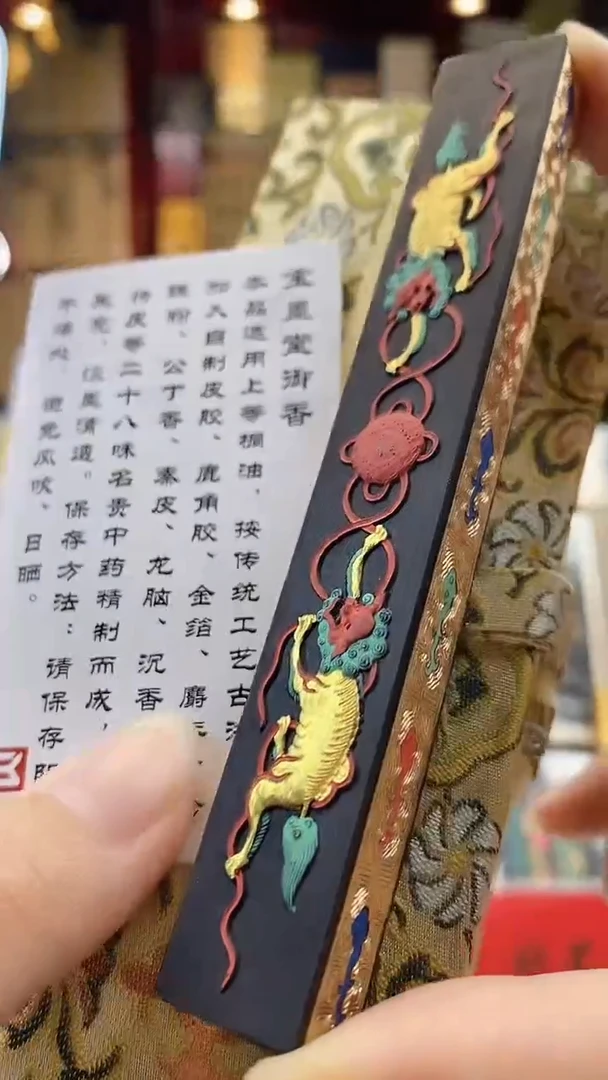 凰堂御香
本品选用上等桐油、按传统工艺古
加入自制皮胶、鹿角胶、金箔、麝
珠粉、公丁香、秦皮、龙脑、沉香
皮等二十八味名贵中药精制而成，
清 。保存方法：请保存阴
干燥处、避免风吹、日晒。